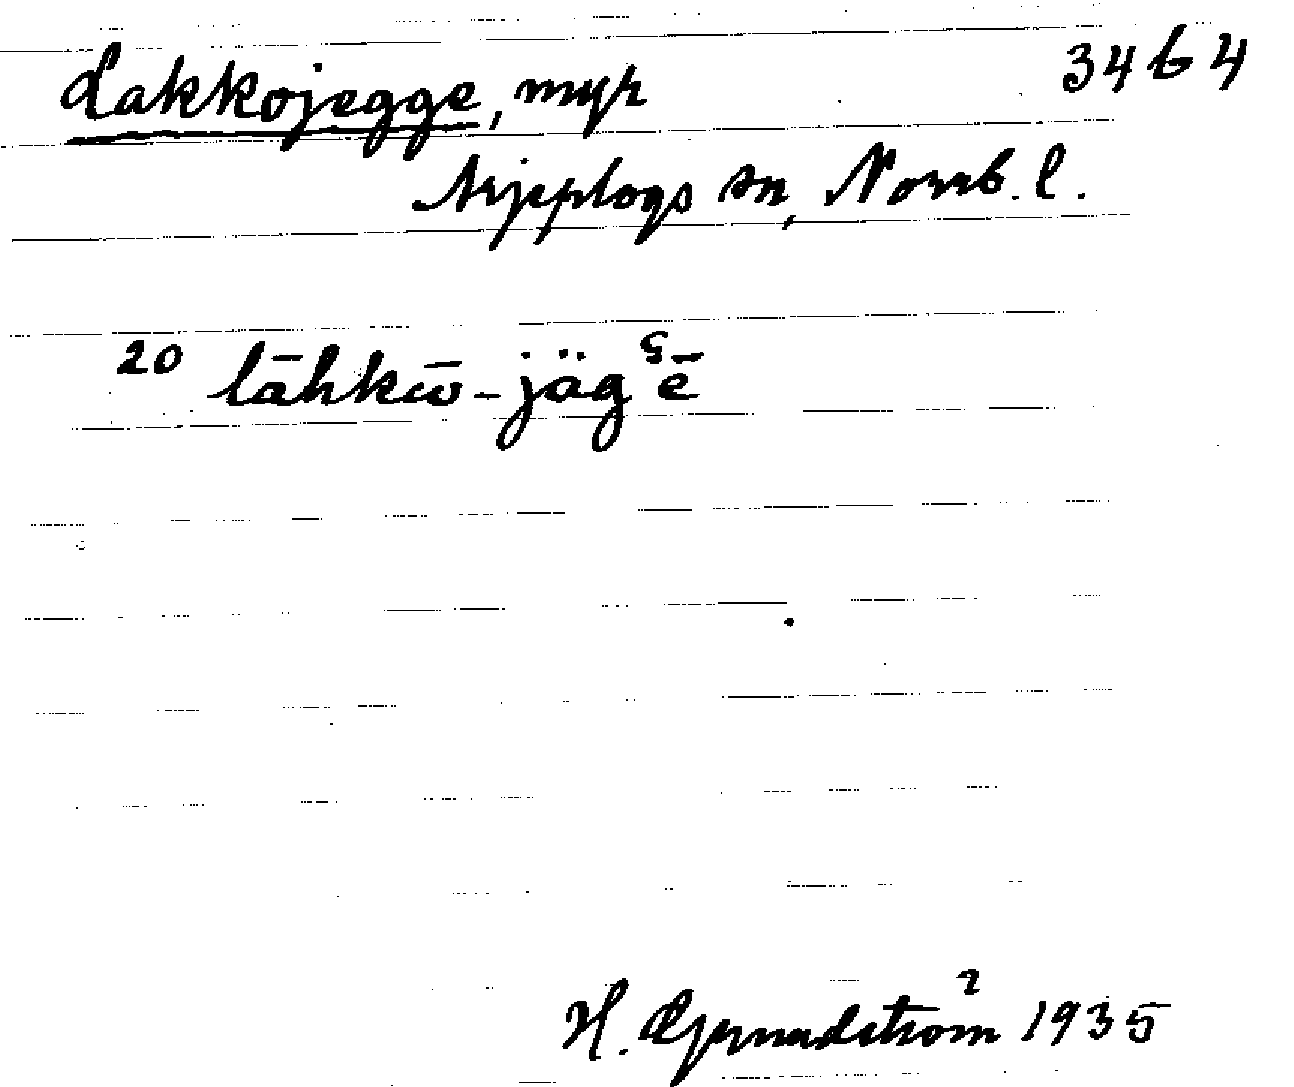 Lakkojegge, myr 3464
Arjeplogs sn, Norrb. l.
20 lāhkω̄-jäg ᶝē
H. Grundström 1935